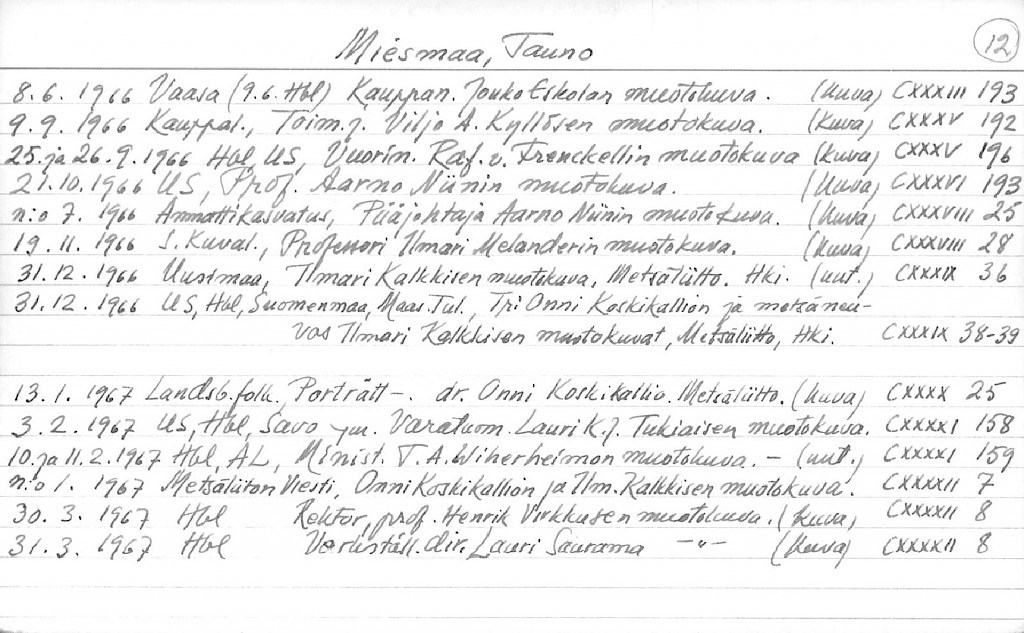 12
Miesmaa, Tauno
8.6. 1966 Vaasa (9.6. Hbl) Kauppan. Jouko Eskolan muotokuva. (kuva) CXXXIII 193
9.9. 1966 Kauppal., Toim.j. Viljo A. Kyllösen muotokuva. (kuva) CXXXV 192
25. ja 26.9.1966 Hbl, US, Vuorin. Raf. v. Frenckellin muotokuva (kuva) CXXXV 196
21.10.1966 US, Prof. Aarno Niinin muotokuva. (kuva) CXXXVI 193
n:o 7. 1966 Ammattikasvatus, Pääjohtaja Aarno Niinin muotokuva. (kuva) CXXXVIII 25
19.11.1966 S. Kuval., Professori Ilmari Melanderin muotokuva. (kuva) CXXXVIII 28
31.12.1966 Uusimaa, Ilmari Kalkkisen muotokuva, Metsäliitto. Hki. (uut.) CXXXIX 36
31.12.1966 US, Hbl, Suomenmaa, Maas.Tul., Tri Onni Koskikallion ja metsäneu-
vos Ilmari Kalkkisen muotokuvat, Metsäliitto, Hki. CXXXIX 38-39
13.1. 1967 Landsb. folk. Porträtt -. dr. Onni Koskikallio. Metsäliitto. (kuva) CXXXX 25
3.2. 1967 US, Hbl, Savo ym. Varatuom. Lauri K.J. Tukiaisen muotokuva. CXXXXI 158
10. ja 11.2.1967 Hbl, AL, Minist. T.A. Wiherheimon muotokuva. - (uut.) CXXXXI 159
n:o 1. 1967 Metsäliiton Viesti, Onni Koskikallion ja Ilm. Kalkkisen muotokuva. CXXXXII 7
30.3. 1967 Hbl Rektor, prof. Henrik Virkkusen muotokuva. (kuva) CXXXXII 8
31.3. 1967 Hbl Verkst.äll. dir. Lauri Saurama -"- (kuva) CXXXXII 8